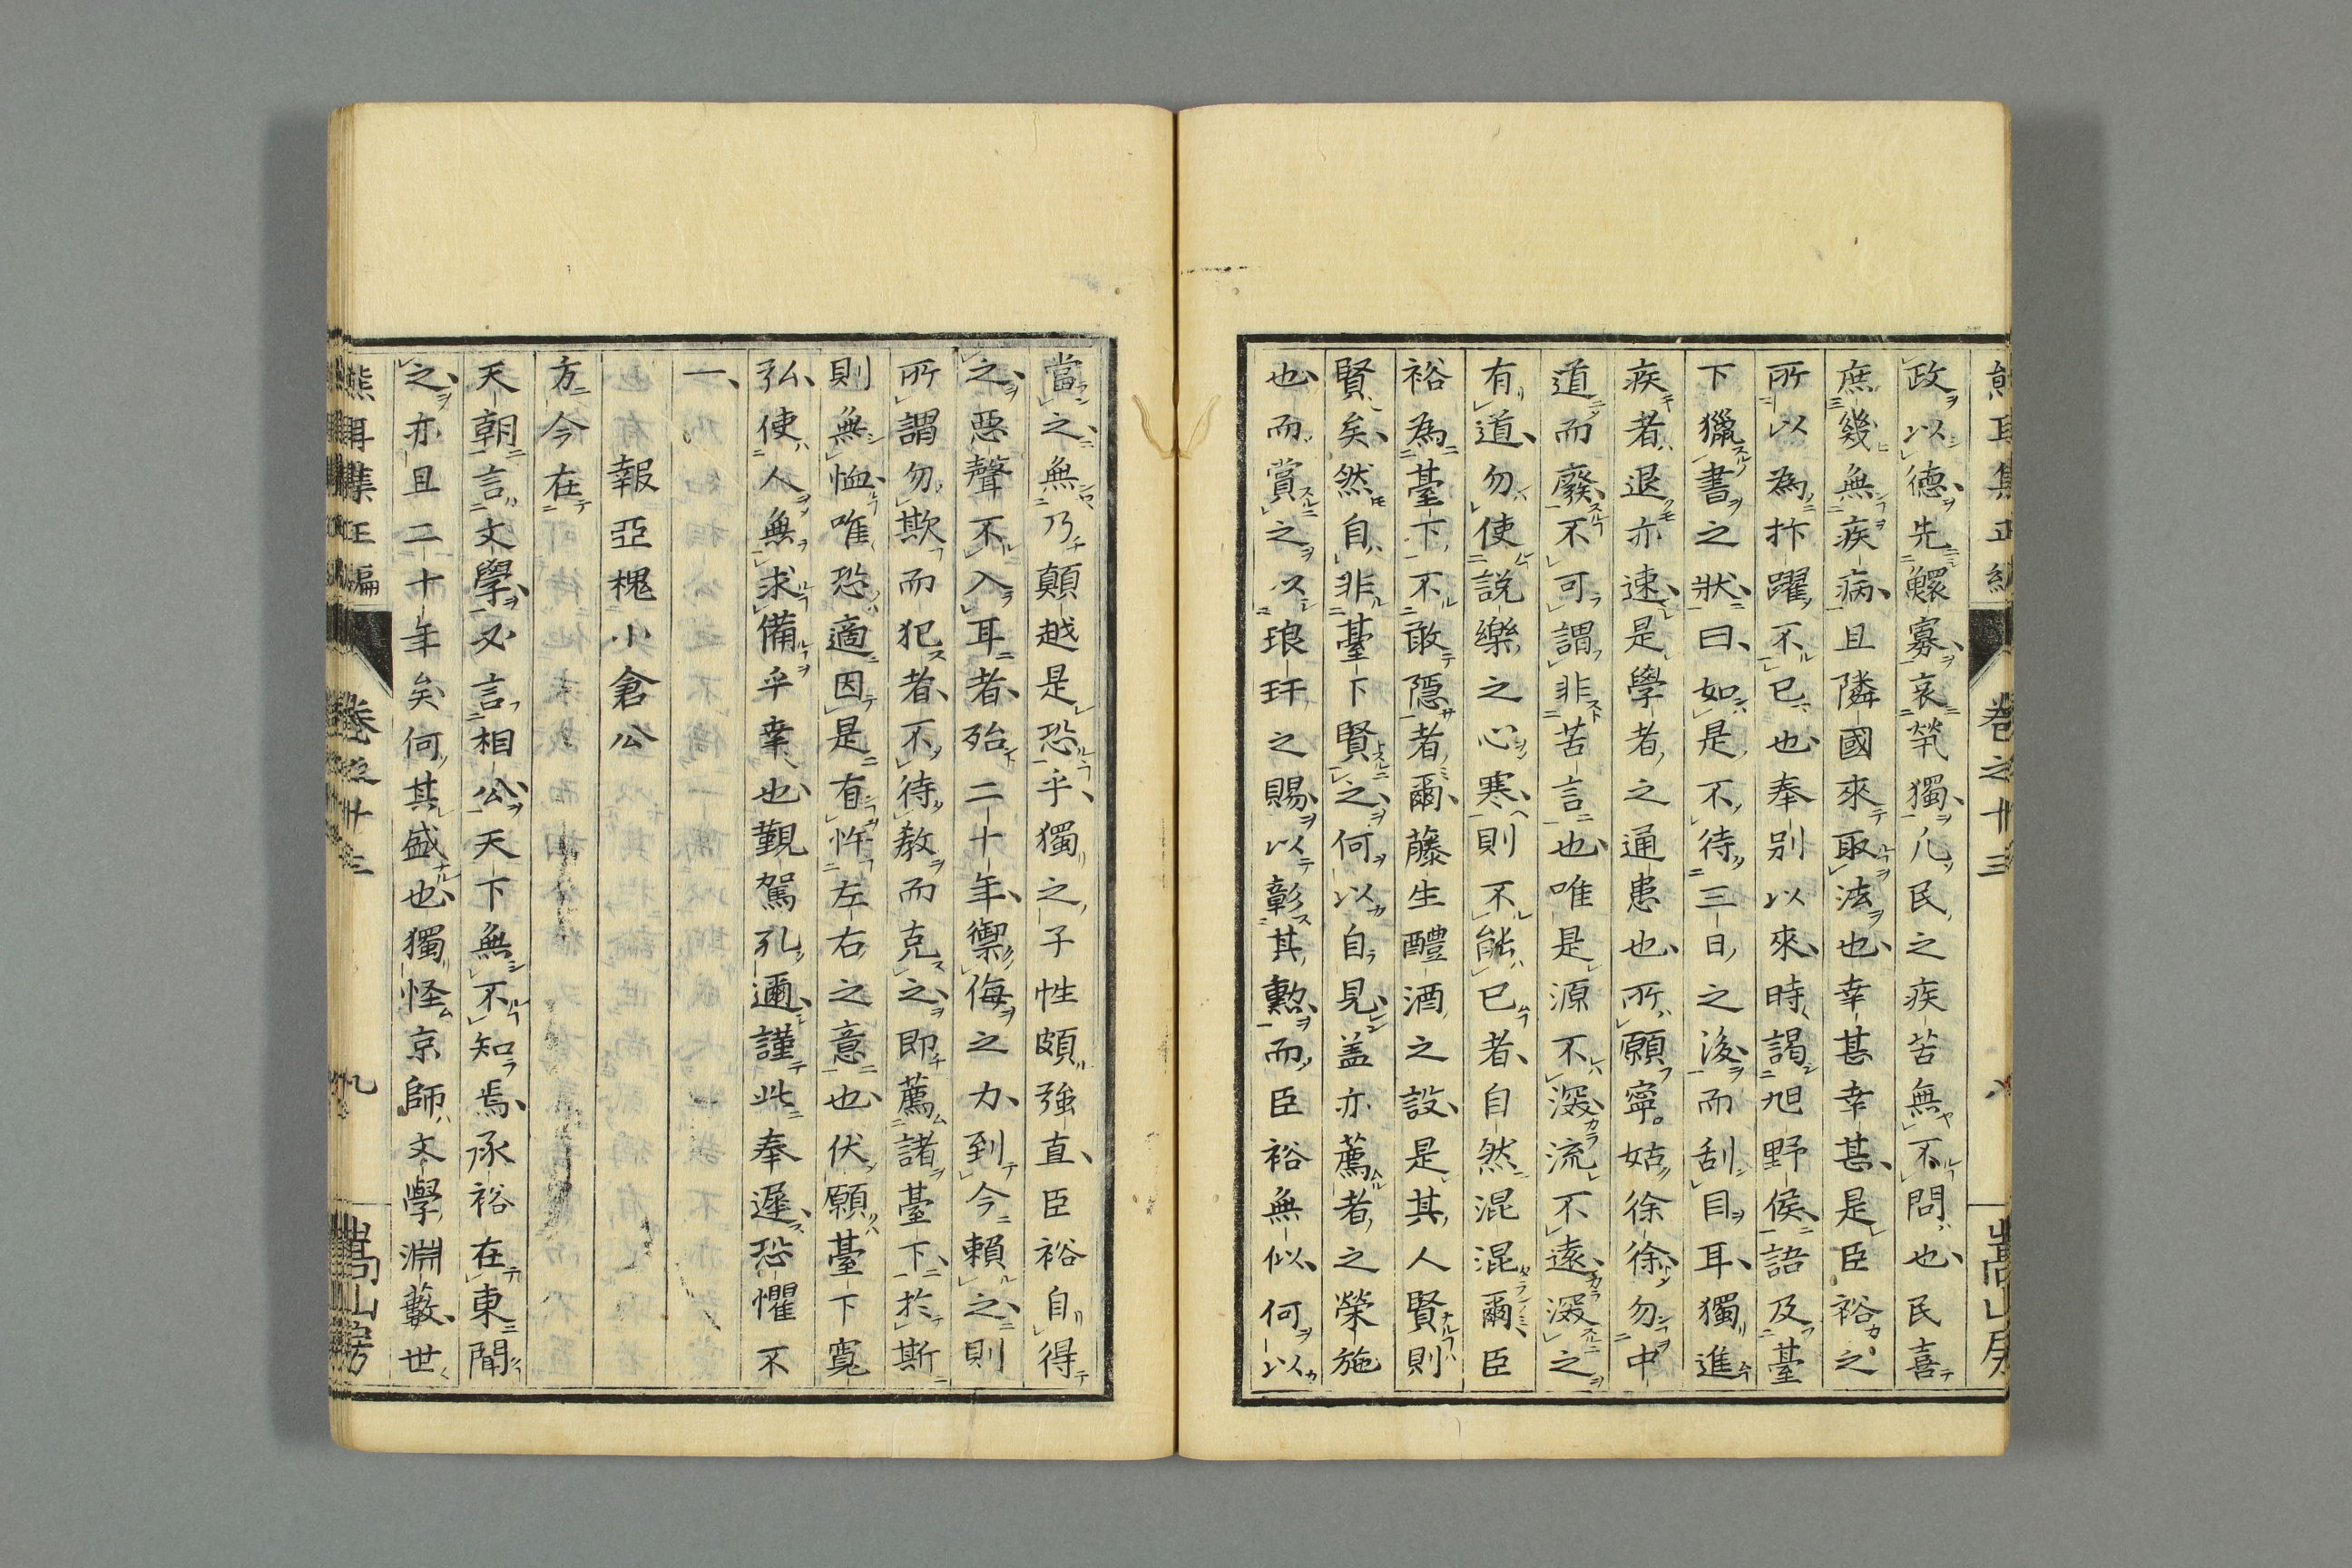 政以德先鰥寡哀煢獨凡民之疾苦無不問也民喜
庶幾無疾病且隣國來取法也幸甚幸甚是臣裕之
所以為抃躍不已也奉別以來時謁旭野侯語及臺
下獵書之狀曰如是不待三日之後而刮目耳獨進
疾者退亦速是學者之通患也所願寧姑徐徐勿中
道而廢不可謂非苦言也唯是源不深流不遠深之
有道勿使說樂之心寒則不能已者自然混混爾臣
裕為臺下不敢隱者爾藤生醴酒之設是其人賢則
賢矣然自非臺下賢之何以自見蓋亦薦者之榮施
也而賞之以琅玕之賜以彰其勲而臣裕無似何以
當之無乃顛越是恐乎獨之子性頗強直臣裕自得
之惡聲不入耳者殆二十年禦侮之力到今賴之則
所謂勿欺而犯者不待教而克之即薦諸臺下於斯
則無恤唯恐適因是有忤左右之意也伏願臺下寬
弘使人無求備乎幸也覲駕孔邇謹此奉遲恐懼不
一
報亞槐小倉公
方今在
天朝言文學必言相公天下無不知焉承裕在東聞
之亦且二十年矣何其盛也獨怪京師文學淵藪世
熊耳集正編
卷之十三
九
嵩山房